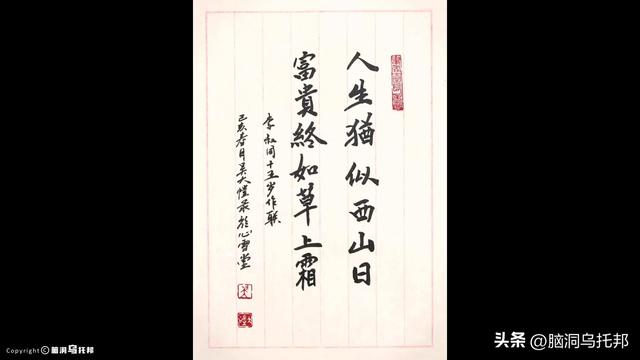 人生猶似西山日
富貴終如草上霜
李叔同十五岁作联
己亥春月吴大恺录於心雪堂
Copyright © 脑洞乌托邦
头条 @脑洞乌托邦